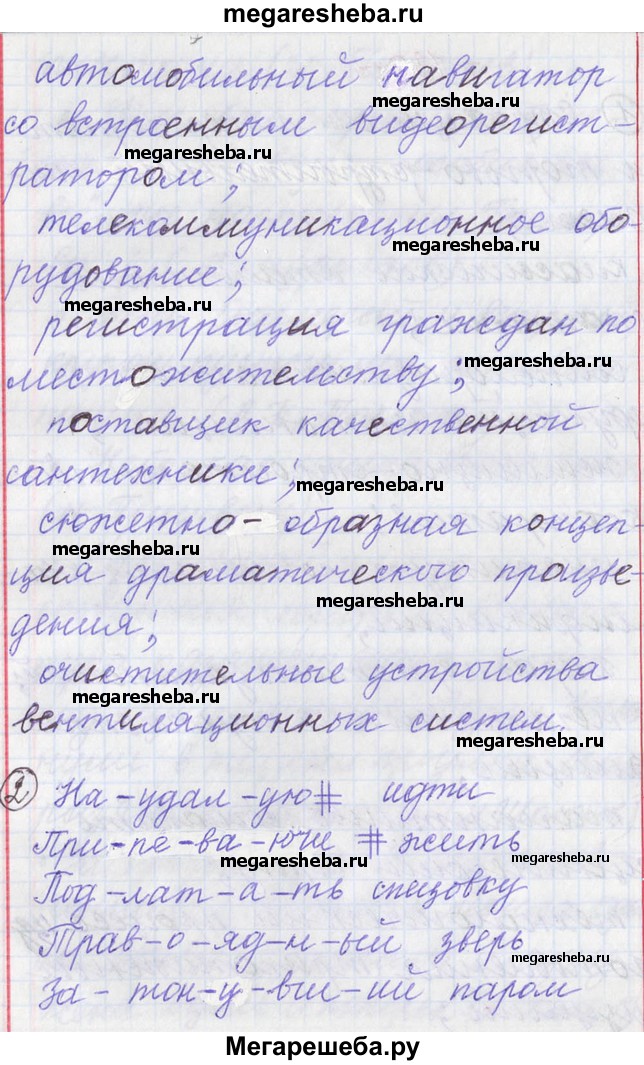 megaresheba.ru
автомобильный навигатор
megaresheba.ru
со встроенным видеорегист-
megaresheba.ru
ратором;
телекоммуникационное обо-
megaresheba.ru
рудование;
megaresheba.ru
регистрация граждан по
местожительству;
megaresheba.ru
поставщик качественной
сантехники;
megaresheba.ru
сюжетно-образная концеп-
megaresheba.ru
ция драматического произве-
megaresheba.ru
дения;
очистительные устройства
megaresheba.ru
вентиляционных систем.
megaresheba.ru
2 На-удал-ую# идти
megaresheba.ru
При-пе-ва-ючи # жить
megaresheba.ru
megaresheba.ru
Под-лат-а-ть спецовку
Трав-о-яд-н-ый зверь
megaresheba.ru
megaresheba.ru
За-тон-у-вш-ий паром
Мегарешеба.ру